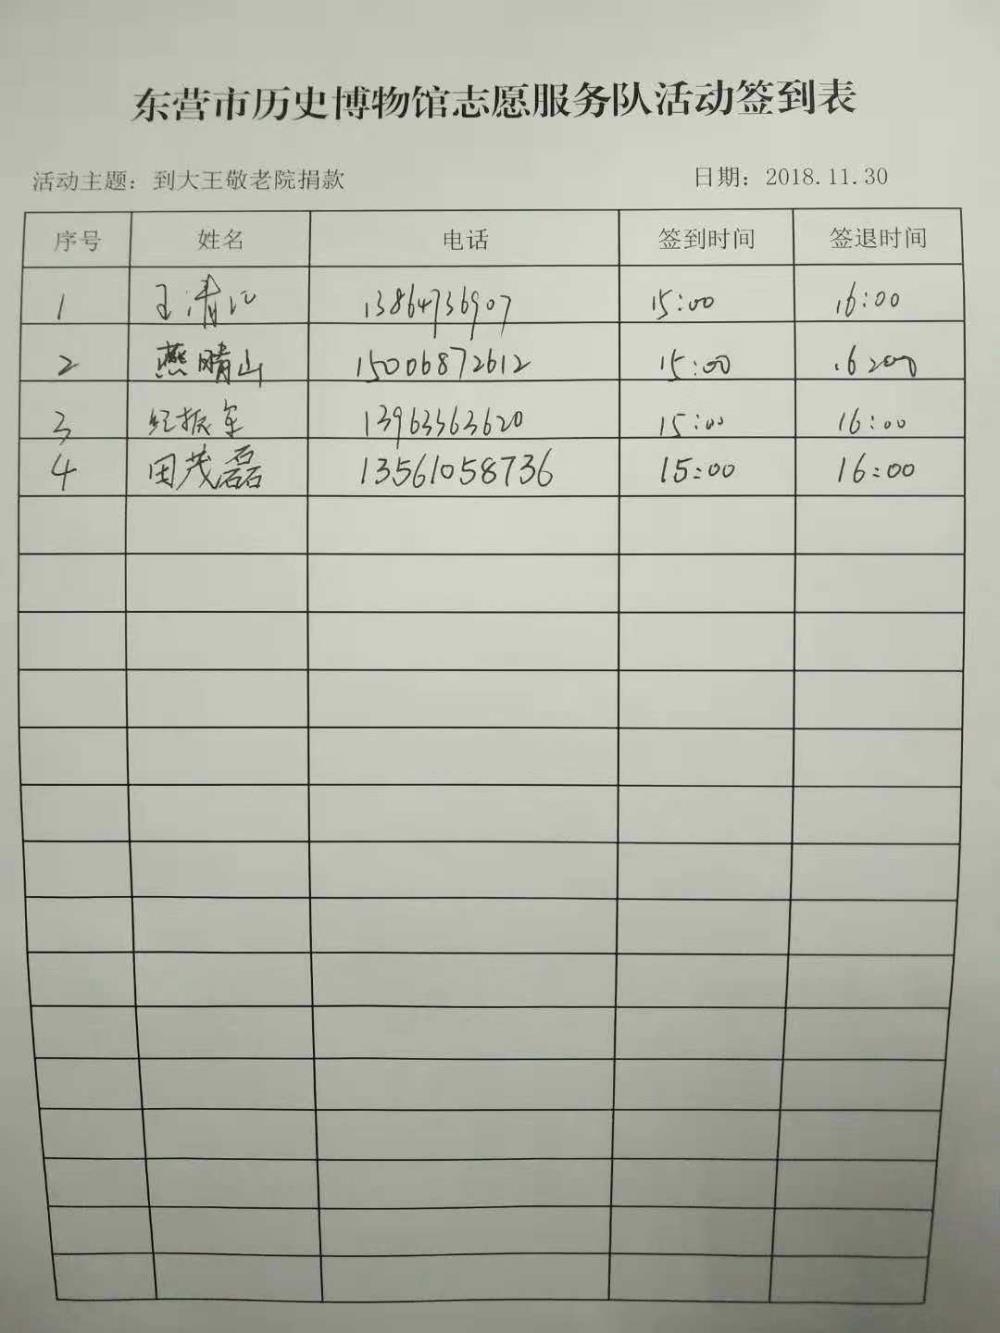 东营市历史博物馆志愿服务队活动签到表
活动主题：到大王敬老院捐款 日期：2018.11.30
序号 姓名 电话 签到时间 签退时间
1 王清江 13864736907 15:00 16:00
2 燕晴山 15006872612 15:00 16:00
3 振军 13963363620 15:00 16:00
4 田茂磊 13561058736 15:00 16:00